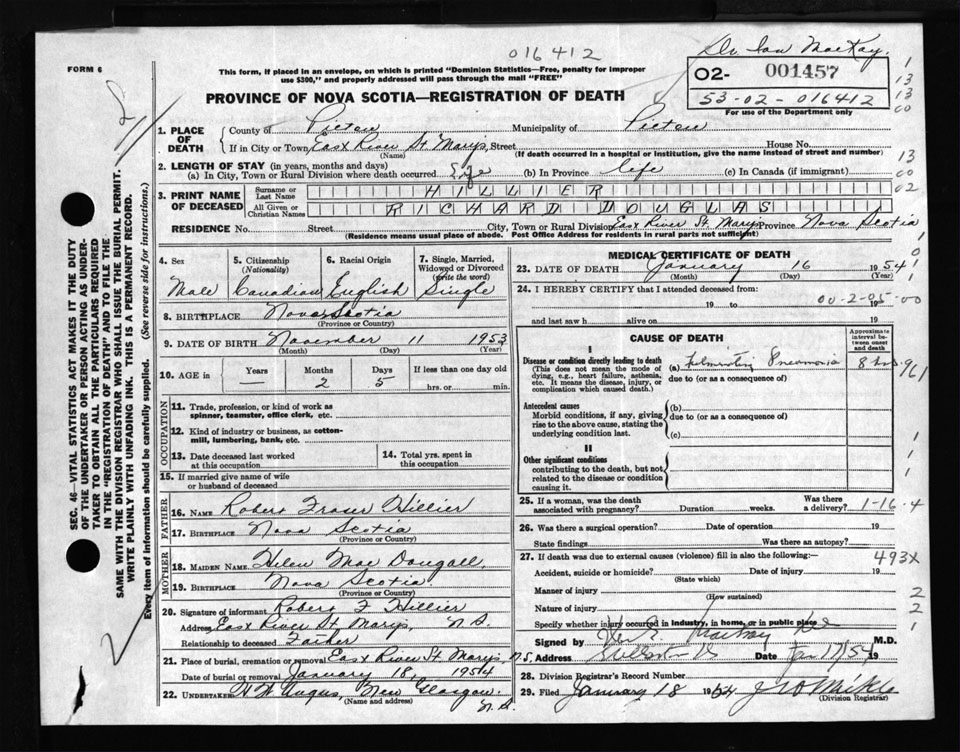 Dr Ian MacKay.
016412
FORM 6
This form, if placed in an envelope, on which is printed "Dominion Statistics—Free, penalty for improper
use $300," and properly addressed will pass through the mail "FREE"
02- 001457
53-02-016412
For use of the Department only
PROVINCE OF NOVA SCOTIA—REGISTRATION OF DEATH
1. PLACE OF DEATH
County of Pictou Municipality of Pictou
If in City or Town East River St. Marys, Street House No.
(Name) (If death occurred in a hospital or institution, give the name instead of street and number)
2. LENGTH OF STAY (in years, months and days)
(a) In City, Town or Rural Division where death occurred Life (b) In Province life (c) In Canada (if immigrant)
3. PRINT NAME OF DECEASED
Surname or Last Name HILLIER
All Given or Christian Names RICHARD DOUGLAS
RESIDENCE No. Street City, Town or Rural Division East River St. Marys Province Nova Scotia
(Residence means usual place of abode. Post Office Address for residents in rural parts not sufficient)
4. Sex
Male
5. Citizenship
(Nationality)
Canadian
6. Racial Origin
English
7. Single, Married,
Widowed or Divorced
(write the word)
Single
8. BIRTHPLACE Nova Scotia
(Province or Country)
9. DATE OF BIRTH November 11 1953
(Month) (Day) (Year)
10. AGE in Years — Months 2 Days 5 If less than one day old
hrs. or min.
OCCUPATION
11. Trade, profession, or kind of work as
spinner, teamster, office clerk, etc.
12. Kind of industry or business, as cotton-
mill, lumbering, bank, etc.
13. Date deceased last worked
at this occupation
14. Total yrs. spent in
this occupation
15. If married give name of wife
or husband of deceased
FATHER
16. NAME Robert Fraser Hillier
17. BIRTHPLACE Nova Scotia
(Province or Country)
MOTHER
18. MAIDEN NAME Helen MacDougall
19. BIRTHPLACE Nova Scotia
(Province or Country)
20. Signature of informant Robert F Hillier
Address East River St. Marys, N.S.
Relationship to deceased Father
21. Place of burial, cremation or removal East River St. Marys, N.S.
Date of burial or removal January 18, 1954
22. UNDERTAKER Angus, New Glasgow, N.S.
(Name and address)
MEDICAL CERTIFICATE OF DEATH
23. DATE OF DEATH January 16 1954
(Month) (Day)
24. I HEREBY CERTIFY that I attended deceased from:
19 to 19
00-2-05-00
and last saw h alive on 19
CAUSE OF DEATH
Approximate
interval be-
tween onset
and death
I
Disease or condition directly leading to death
(This does not mean the mode of
dying, e.g., heart failure, asthenia,
etc. It means the disease, injury, or
complication which caused death.)
(a) Fulminating Pneumonia 8 hrs
due to (or as a consequence of)
Antecedent causes
Morbid conditions, if any, giving
rise to the above cause, stating the
underlying condition last.
(b)
due to (or as a consequence of)
(c)
II
Other significant conditions
contributing to the death, but not
related to the disease or condition
causing it.
25. If a woman, was the death
associated with pregnancy? Duration weeks. Was there
a delivery? 1-16-4
26. Was there a surgical operation? Date of operation 19
State findings Was there an autopsy?
27. If death was due to external causes (violence) fill in also the following:
493X
Accident, suicide or homicide? Date of injury 19
(State which)
Manner of injury
(How sustained)
Nature of injury
Specify whether injury occurred in industry, in home, or in public place
Signed by MacKay M.D.
Address Date Jan 17/54 19
28. Division Registrar's Record Number
29. Filed January 18 1954
(Division Registrar)
SEC. 46—VITAL STATISTICS ACT MAKES IT THE DUTY
OF THE UNDERTAKER OR PERSON ACTING AS UNDER-
TAKER TO OBTAIN ALL THE PARTICULARS REQUIRED
IN THE "REGISTRATION OF DEATH" AND TO FILE THE
SAME WITH THE DIVISION REGISTRAR WHO SHALL ISSUE THE BURIAL PERMIT.
WRITE PLAINLY WITH UNFADING INK. THIS IS A PERMANENT RECORD.
Every item of information should be carefully supplied. (See reverse side for instructions.)
1
13
13
00
13
00
02
1
0
1
961
1
1
1
2
2
1